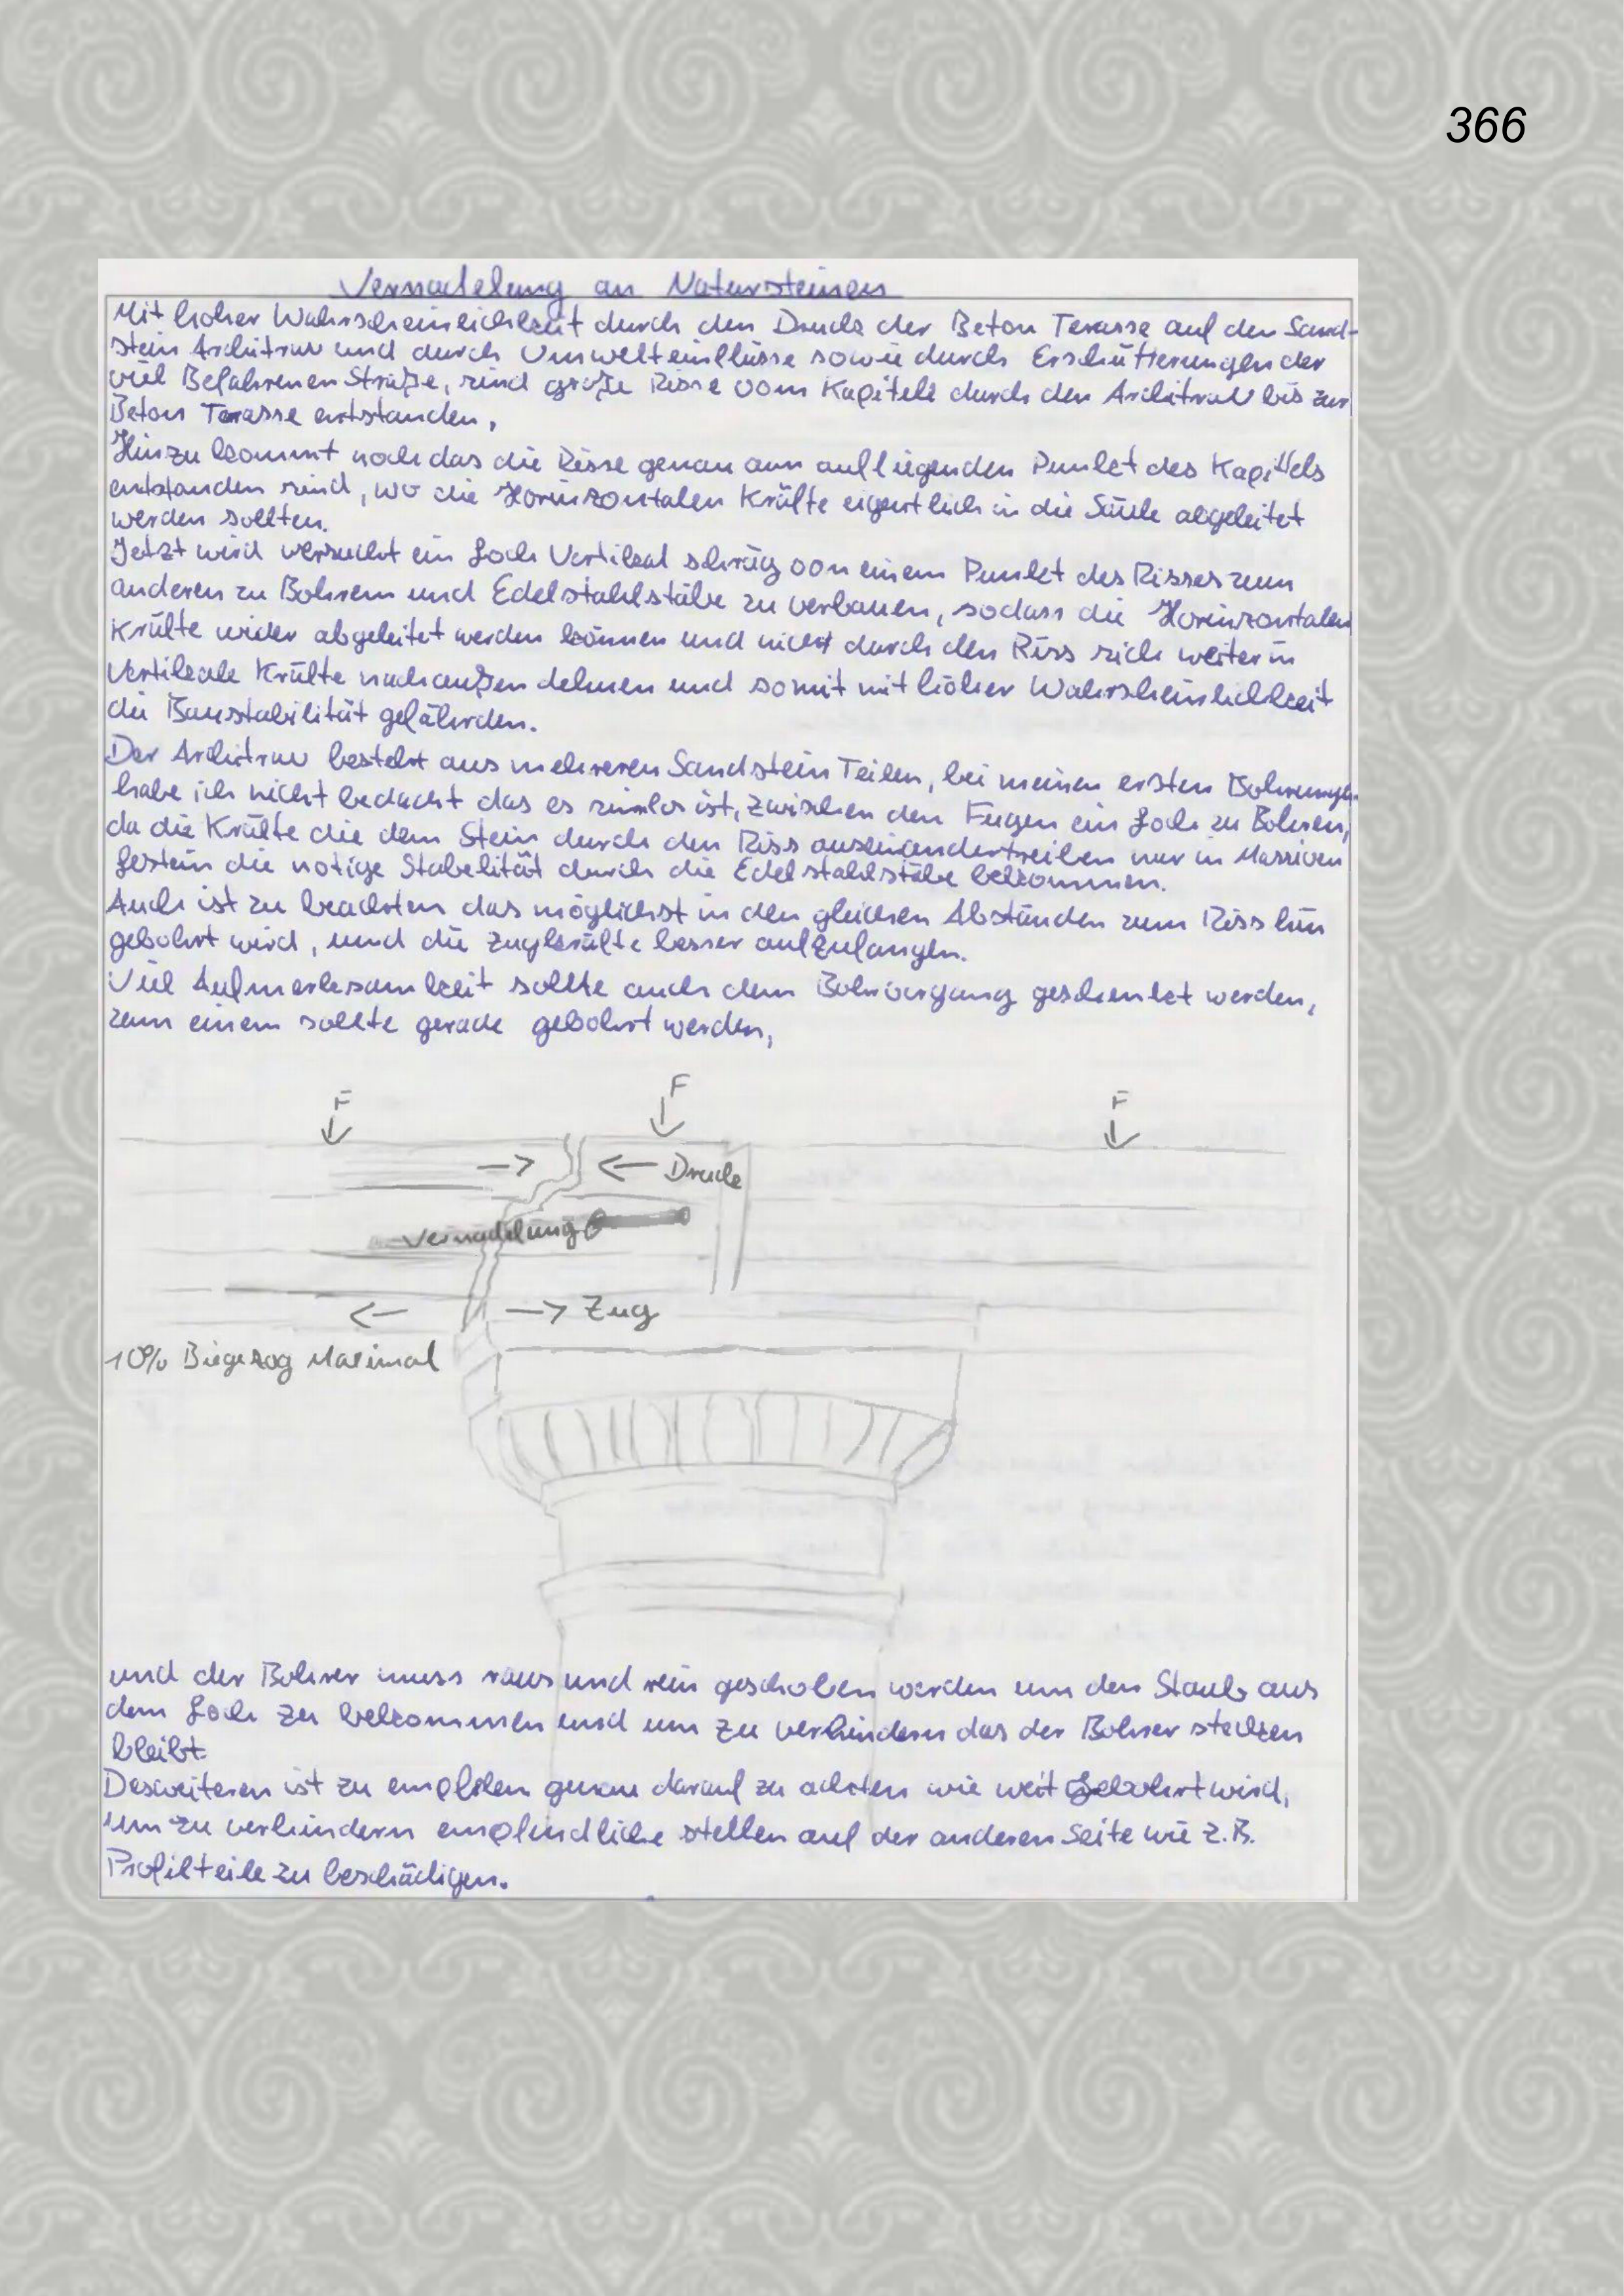 366
Vernadelung an Natursteinen
Mit hoher Wahrscheinlichkeit durch den Druck der Beton Terasse auf den Sand-
stein Architrav und durch Umwelteinflüsse sowie durch Erschütterungen der
viel Befahrenen Straße, sind große Risse vom Kapitell durch den Architrav bis zur
Beton Terasse entstanden.
Hinzu kommt noch das die Risse genau am aufliegenden Punkt des Kapittels
entstanden sind, wo die Horinzontalen Kräfte eigentlich in die Säule abgeleitet
werden sollten.
Jetzt wird versucht ein Loch Vertikal schräg von einem Punkt des Risses zum
anderen zu Bohren und Edelstahlstäbe zu verbauen, sodass die Horinzontalen
Kräfte wider abgeleitet werden können und nicht durch den Riss sich weiter in
Vertikale Kräfte nach außen dehnen und somit mit höher Wahrscheinlichkeit
die Baustabilität gefährden.
Der Architrav besteht aus mehreren Sandstein Teilen, bei meinen ersten Bohrungen
habe ich nicht bedacht das es sinnlos ist, zwischen den Fugen ein Loch zu Bohren,
da die Kräfte die dem Stein durch den Riss auseinandertreiben nur in Massiven
Gestein die nötige Stabilität durch die Edelstahlstäbe bekommen.
Auch ist zu beachten das möglichst in den gleichen Abständen zum Riss hin
gebohrt wird, und die Zugkräfte besser aufzufangen.
Viel Aufmerksamkeit sollte auch dem Bohrvorgang geschenkt werden,
zum einem sollte gerade gebohrt werden,
F F F
Druck
Vernadelung
Zug
10% Biegezog Maximal
und der Bohrer muss raus und rein geschoben werden um den Staub aus
dem Loch zu bekommen und um zu verhindern das der Bohrer stecken
bleibt.
Desweiteren ist zu empfelen genau darauf zu achten wie weit Gebohrt wird,
um zu verhindern empfindliche stellen auf der anderen Seite wie z.B.
Profilteile zu beschädigen.